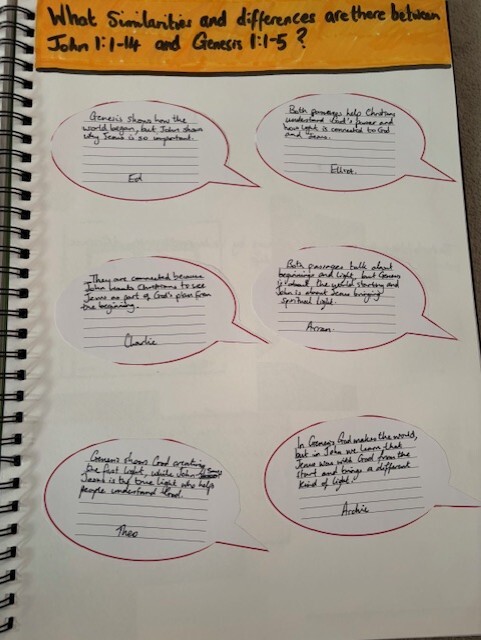 What Similarities and differences are there between
John 1:1-14 and Genesis 1:1-5?
Genesis shows how the
world began, but John shows
why Jesus is so important.
Ed
Both passages help Christians
understand God's power and
how light is connected to God
and Jesus.
Elliot.
They are connected because
John wants Christians to see
Jesus as part of God's plan from
the beginning.
Charlie
Both passages talk about
beginnings and light, but Genesis
is about the world starting and
John is about Jesus bringing
spiritual light.
Arran.
Genesis shows God creating
the first light, while John says
Jesus is the true light who helps
people understand God.
Theo
In Genesis God makes the world,
but in John we learn that
Jesus was with God from the
start and brings a different
kind of light.
Archie